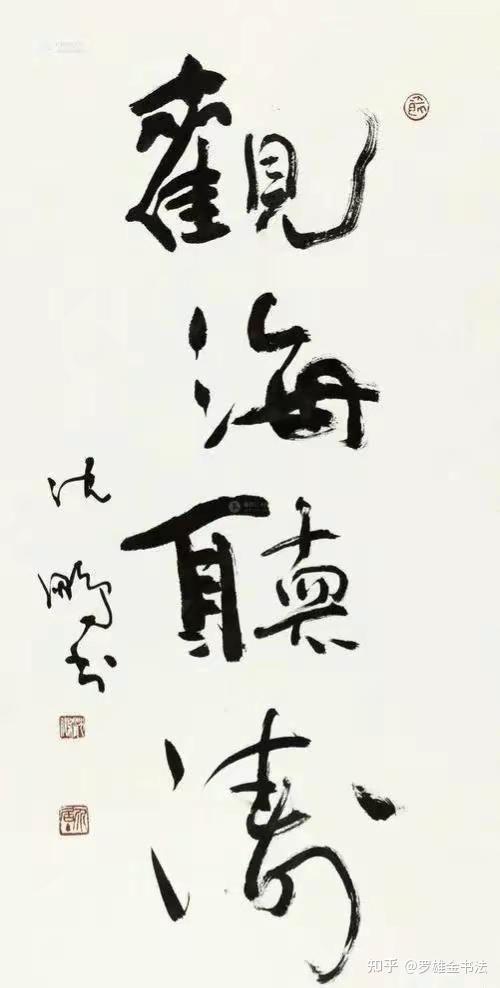 觀海聽濤
沈鵬書
知乎 @罗雄金书法